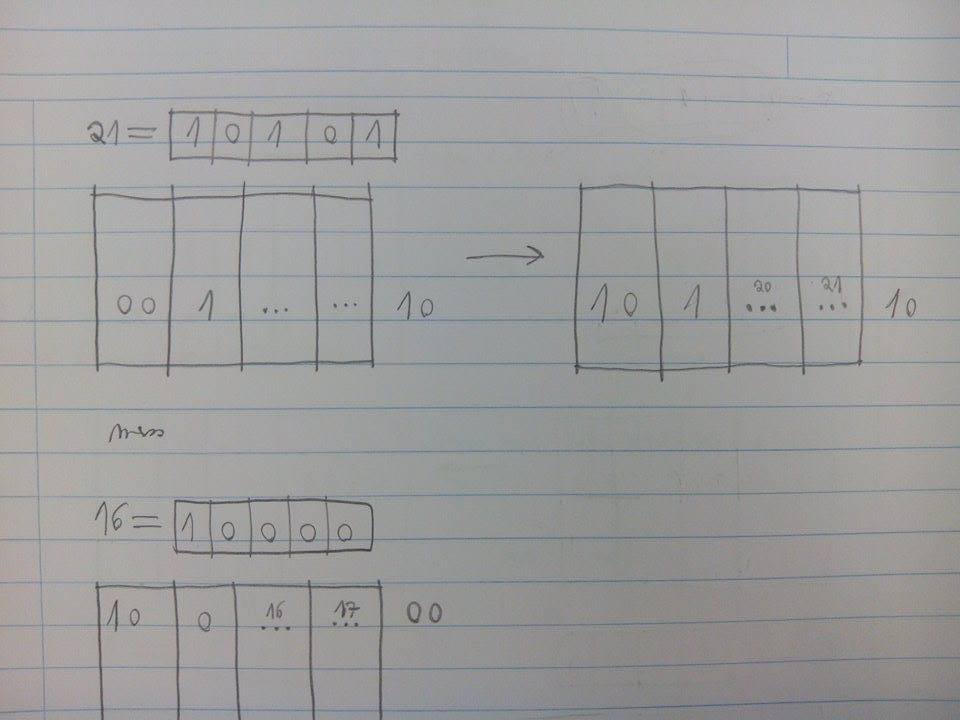 21= 1 0 1 0 1
00 1 ... ... 10 → 10 1 20 ... 21 ... 10
miss
16= 1 0 0 0 0
10 0 16 ... 17 ... 00